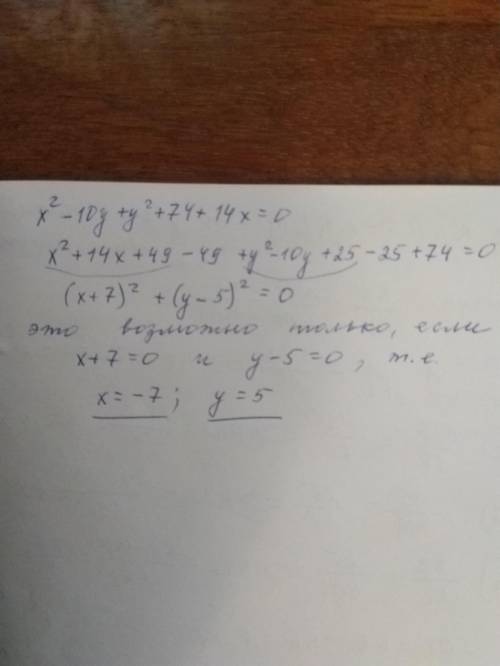 x² - 10y + y² + 74 + 14x = 0
x² + 14x + 49 - 49 + y² - 10y + 25 - 25 + 74 = 0
(x+7)² + (y-5)² = 0
это возможно только, если
x+7=0 и y-5=0, т.е.
x = -7; y = 5